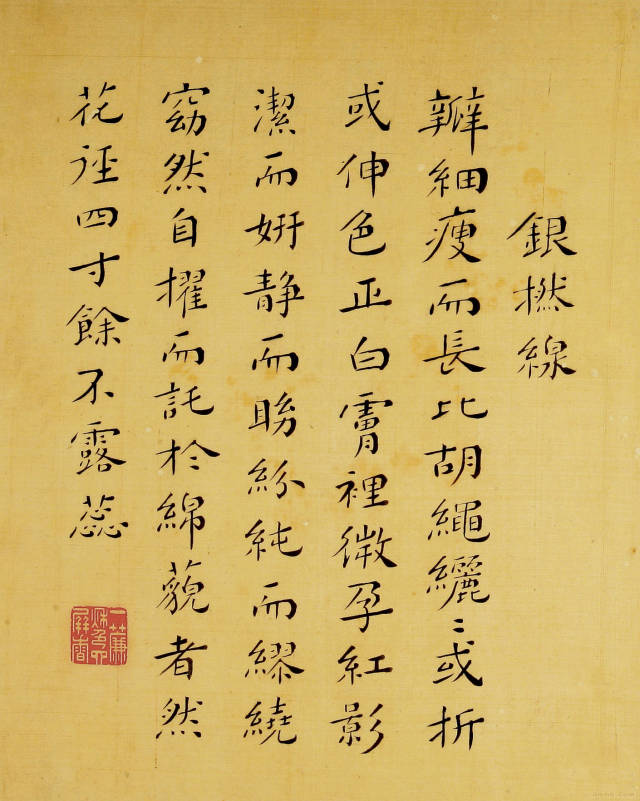 銀撚線
瓣細瘦而長比胡繩纚〻或折
或伸色正白霄裡微孕紅影
潔而妍靜而盼紛純而繆繞
窈然自擢而託於綿藐者然
花徑四寸餘不露蕊